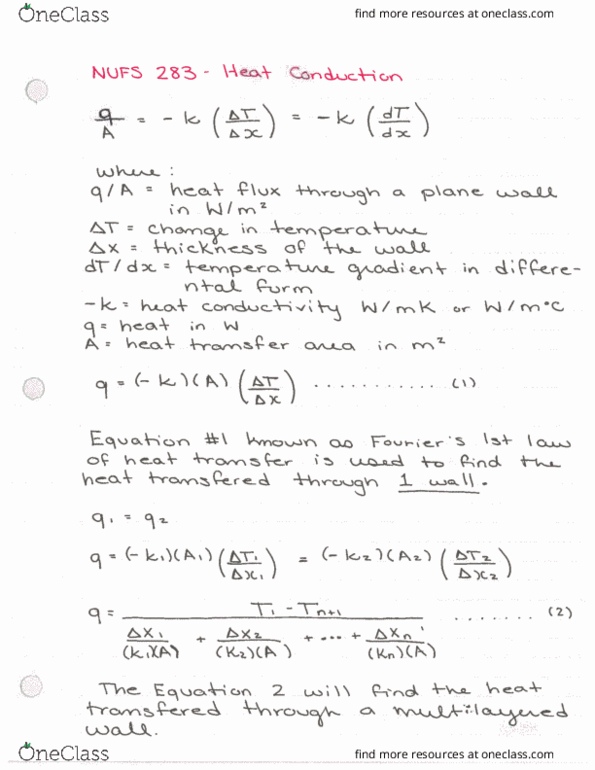 OneClass find more resources at oneclass.com
NUFS 283 - Heat Conduction
q/A = - k (ΔT/Δx) = - k (dT/dx)
where :
q/A = heat flux through a plane wall
in W/m²
ΔT = change in temperature
Δx = thickness of the wall
dT/dx = temperature gradient in differe-
ntal form
-k = heat conductivity W/mK or W/m°C
q = heat in W
A = heat transfer area in m²
q = (-k)(A) (ΔT/Δx) ........... (1)
Equation #1 known as Fourier's 1st law
of heat transfer is used to find the
heat transfered through 1 wall.
q₁ = q₂
q = (-k₁)(A₁) (ΔT₁/Δx₁) = (-k₂)(A₂) (ΔT₂/Δx₂)
q = T₁ - Tn+1 ....... (2)
Δx₁/(k₁)(A) + Δx₂/(k₂)(A) + ... + Δxn/(kn)(A)
The Equation 2 will find the heat
transfered through a multilayered
wall.
OneClass find more resources at oneclass.com